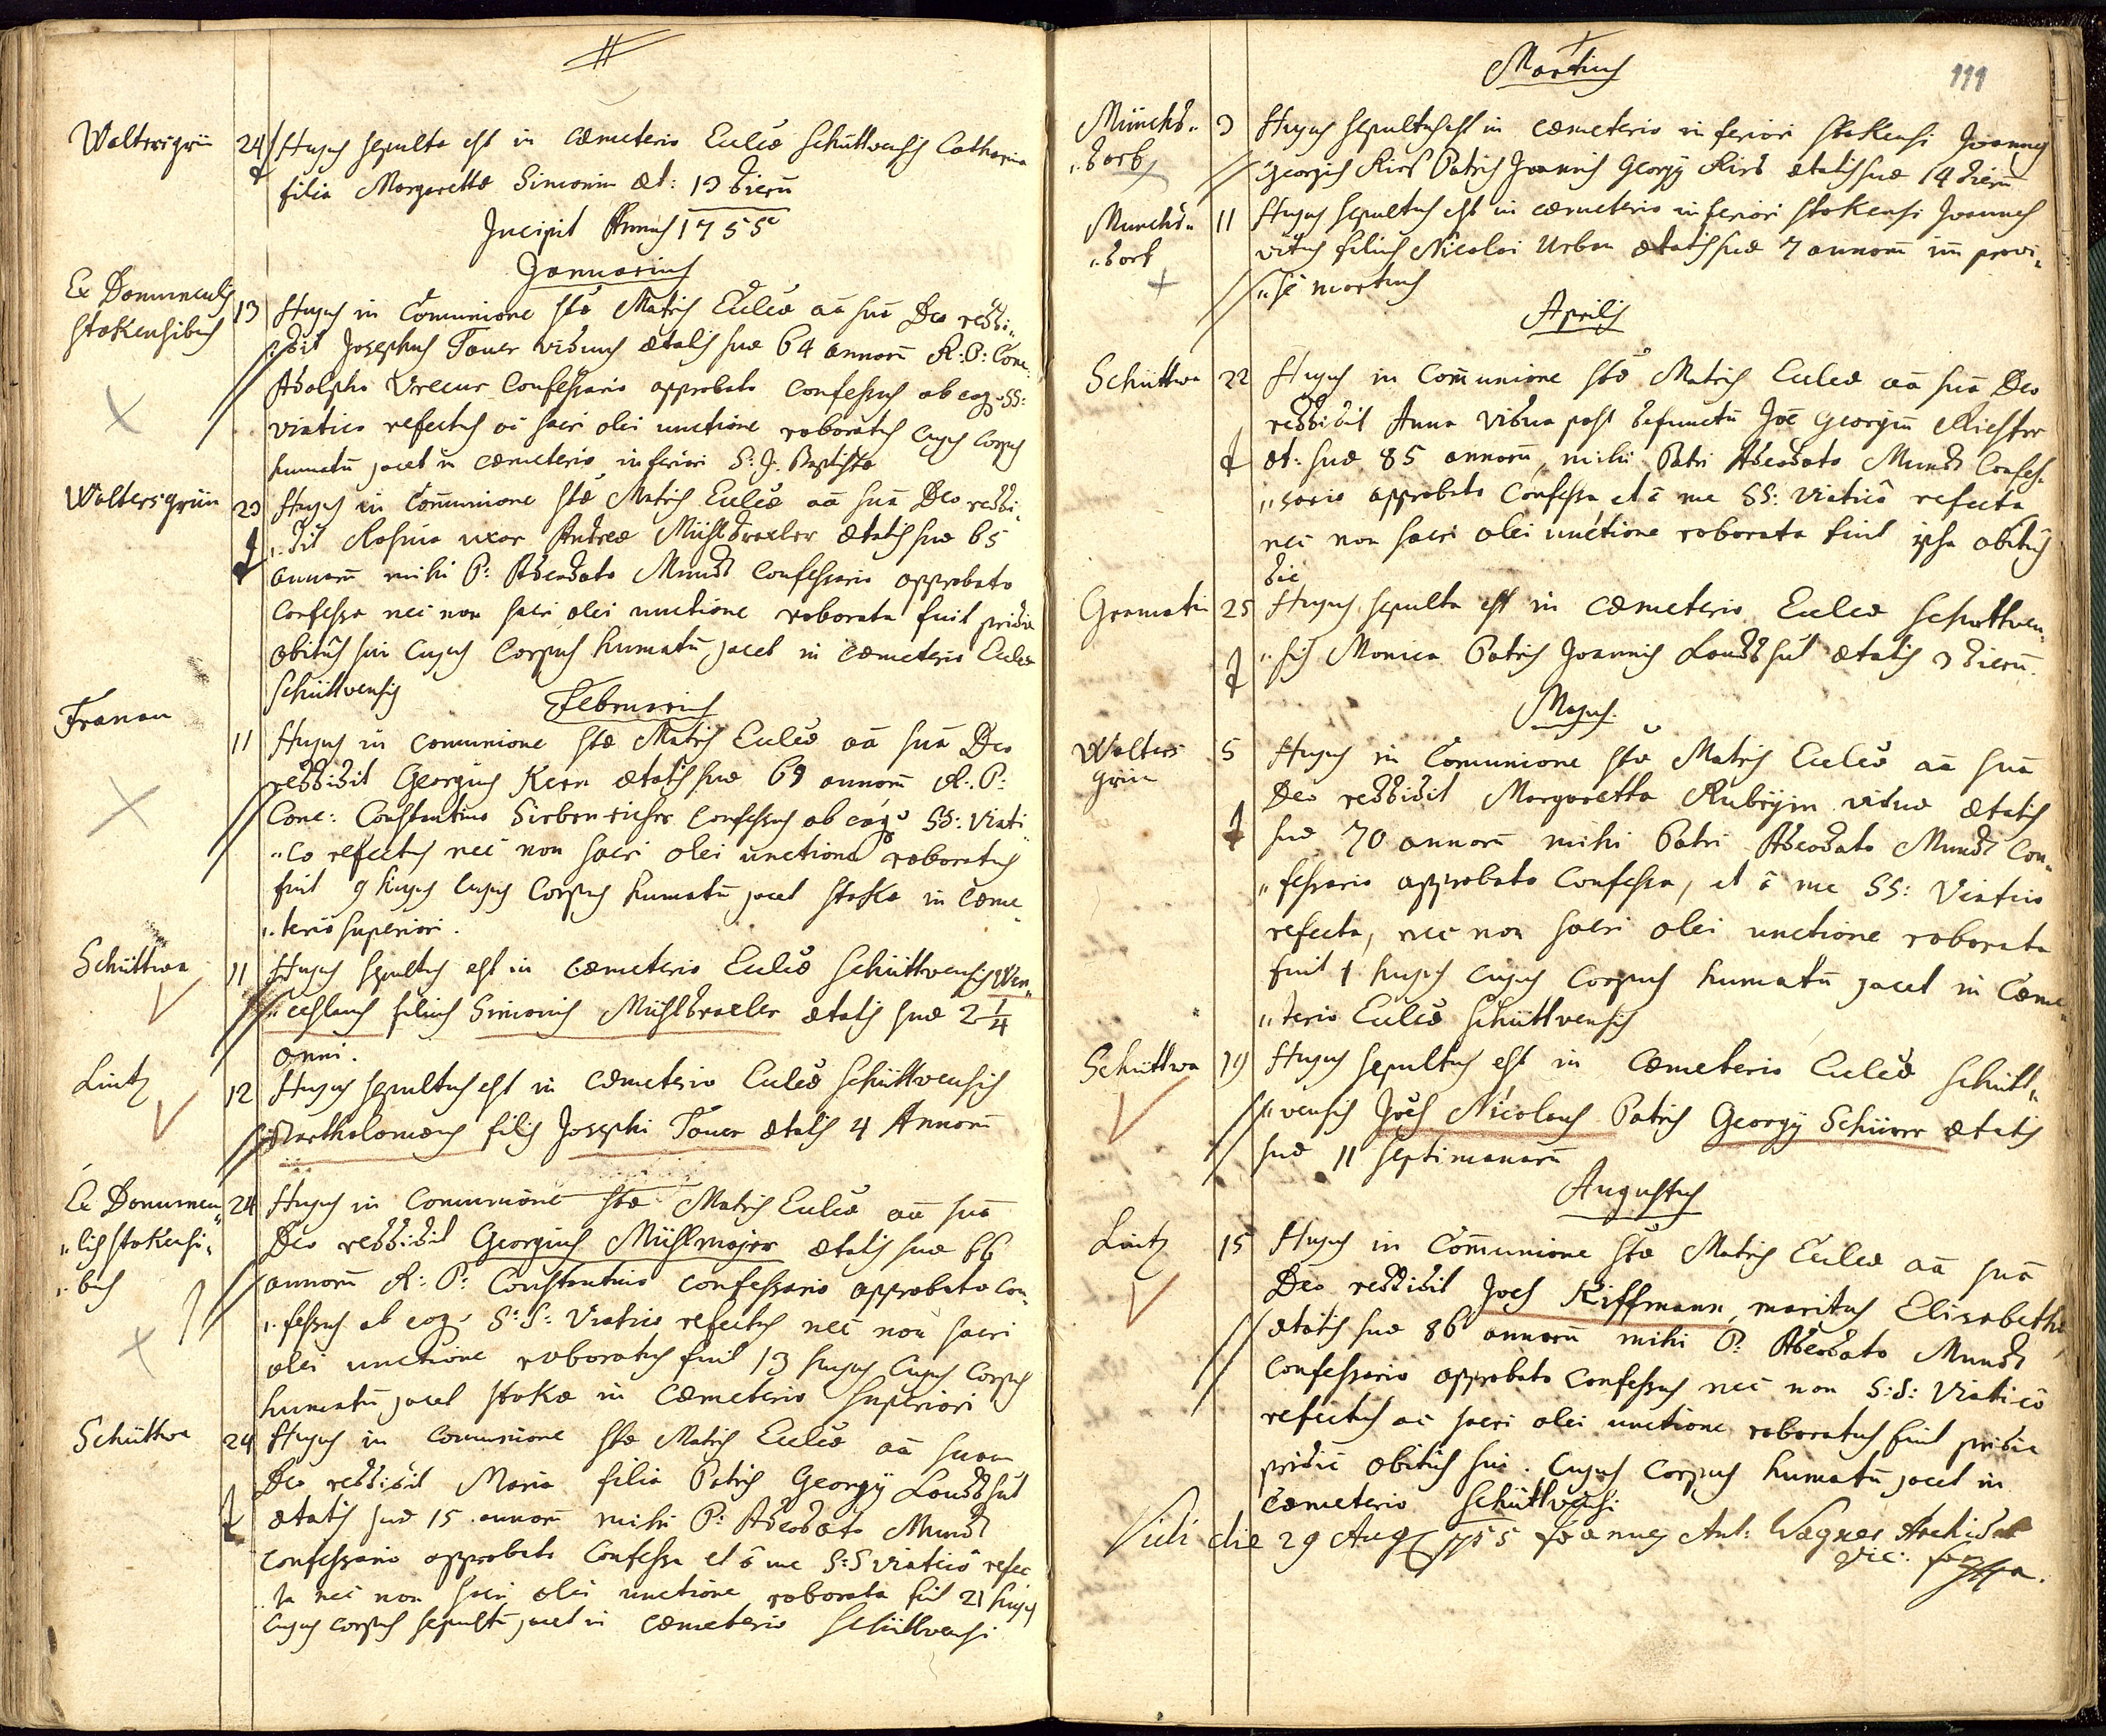 Waltersgrün 24 Hujus sepulta est in cæmeterio Eccliæ Schüttvensis Catharina
filia Margarettæ Simonin æt: 13 dierū
Incipit Annus 1755
Januarius
Ex Domunculis Stokensibus 13 Hujus in Comunione stæ Matris Eccliæ aā suā Deo reddi„
„dit Josephus Tauer viduus ætatis suæ 64 annorū R:P: Conc:
Adolpho Confessario approbato confessus ab eoq; SS:
viatico refectus ac sacri olei unctione roboratus cujus Corpus
humatū jacet in cæmeterio inferiori S: J. Baptistæ
Waltersgrün 23 Hujus in Comunione stæ Matris Eccliæ aā suā Deo reddi„
„dit Rosina uxor Andreæ Mühldraxler ætatis suæ 65
annorū mihi P: Adeodato Mundt Confessario approbato
Confessa nec non sacri olei unctione roborata fuit pridie
obitus sui cujus Corpus humatū jacet in cæmeterio Eccliæ
Schüttvensis
Februarius
Franau 11 Hujus in comunione stæ Matris Eccliæ aā suā Deo
reddidit Georgius Kern ætatis suæ 69 annorū R: P:
Conc: Constantino confessus ab eoq; SS: Viati
„co refectus nec non sacri olei unctione roboratus
fuit 9 hujus cujus Corpus humatū jacet Stokæ in Cæme„
„terio superiori.
Schüttwa 11 Hujus sepultus est in cæmeterio Eccliæ Schüttvensis Wen„
„ceslaus filius Simonis Mühldraxler ætatis suæ 2 1/4
anni.
Lintz 12 Hujus sepultus est in cæmeterio Eccliæ Schüttvensis
Bartholomæus filius Josephi Tauer ætatis 4 Annorū
Ex Domuncu„ „lis Stokensi„ „bus 24 Hujus in Comunione stæ Matris Eccliæ aā suā
Deo reddidit Georgius Mühlmajer ætatis suæ 66
annorū R: P: Constantino confessario approbato con„
„fessus ab eoq; S:S: Viatico refectus nec non sacri
olei unctione roboratus fuit 13 hujus cujus Corpus
humatū jacet Stokæ in Cæmeterio Superiori
Schüttwa 24 Hujus in comunione stæ Matris Eccliæ aā suam
Deo reddidit Maria filia Patris Georgÿ Landshut
ætatis suæ 15 annorū mihi P: Adeodato Mundt
confessario approbato Confessa et â me S:S viaticô refec
„ta nec non sacri olei unctione roborata fuit 21 hujus
cujus corpus sepultū jacet in cæmeterio Schüttvensi
111
Martius
Münchs„ „dorf 3 Hujus sepultus est in cæmeterio inferiori Stokensi Joannes
Georgius Kirs Patris Joannis Georgÿ Kirs ætatis suæ 14 dierū
Munchs„ „dorf 11 Hujus sepultus est in cæmeterio inferiori Stokensi Joannes
vitus filius Nicolai Urban ætatis suæ 7 annorū im provi„
„sè mortuus
Aprilis
Schüttwa 22 Hujus in Comunione stæ Matris Eccliæ aā suā Deo
reddidit Anna Vidua post defunctū Joē Georgiū Richter
æt: suæ 85 annorū, mihi Patri Adeodato Mundt Confes„
„sario approbato Confessa, et â me SS: Viaticô refecta
nec non sacri olei unctione roborata fuit ipsa obitus
die
Gramatin 25 Hujus sepulta est in cæmeterio Eccliæ Schüttven„
„sis Monica Patris Joannis Landshut ætatis 3 dierū
Majus.
Walters grün 5 Hujus in Comunione stæ Matris Eccliæ aā suā
Deo reddidit Margaretta Rubÿin vidua ætatis
suæ 70 annorū mihi Patri Adeodato Mundt Con„
„fessario approbato Confessa, et â me SS: Viatico
refecta, nec non sacri olei unctione roborata
fuit 1 hujus cujus Corpus humatū jacet in Cæme„
„terio Eccliæ Schüttvensis
Schüttwa 19 Hujus sepultus est in cæmeterio Eccliæ Schütt„
„vensis Joēs Nicolaus Patris Georgÿ Schürer ætatis
suæ 11 septimanarū
Augustus
Lintz 15 Hujus in Comunione stæ Matris Eccliæ aā suā
Deo reddidit Joēs Kiffmann, maritus Elisabethæ,
ætatis suæ 86 annorū mihi P: Adeodato Mundt
Confessario approbato confessus nec non S:S: Viaticô
refectus ac sacri olei unctione roboratus fuit pridie
pridie obitus sui. cujus Corpus humatū jacet in
cæmeterio Schüttvensi
Vidi die 29 Aug 1755 Joannes Ant: Wagner Archid
Vic: